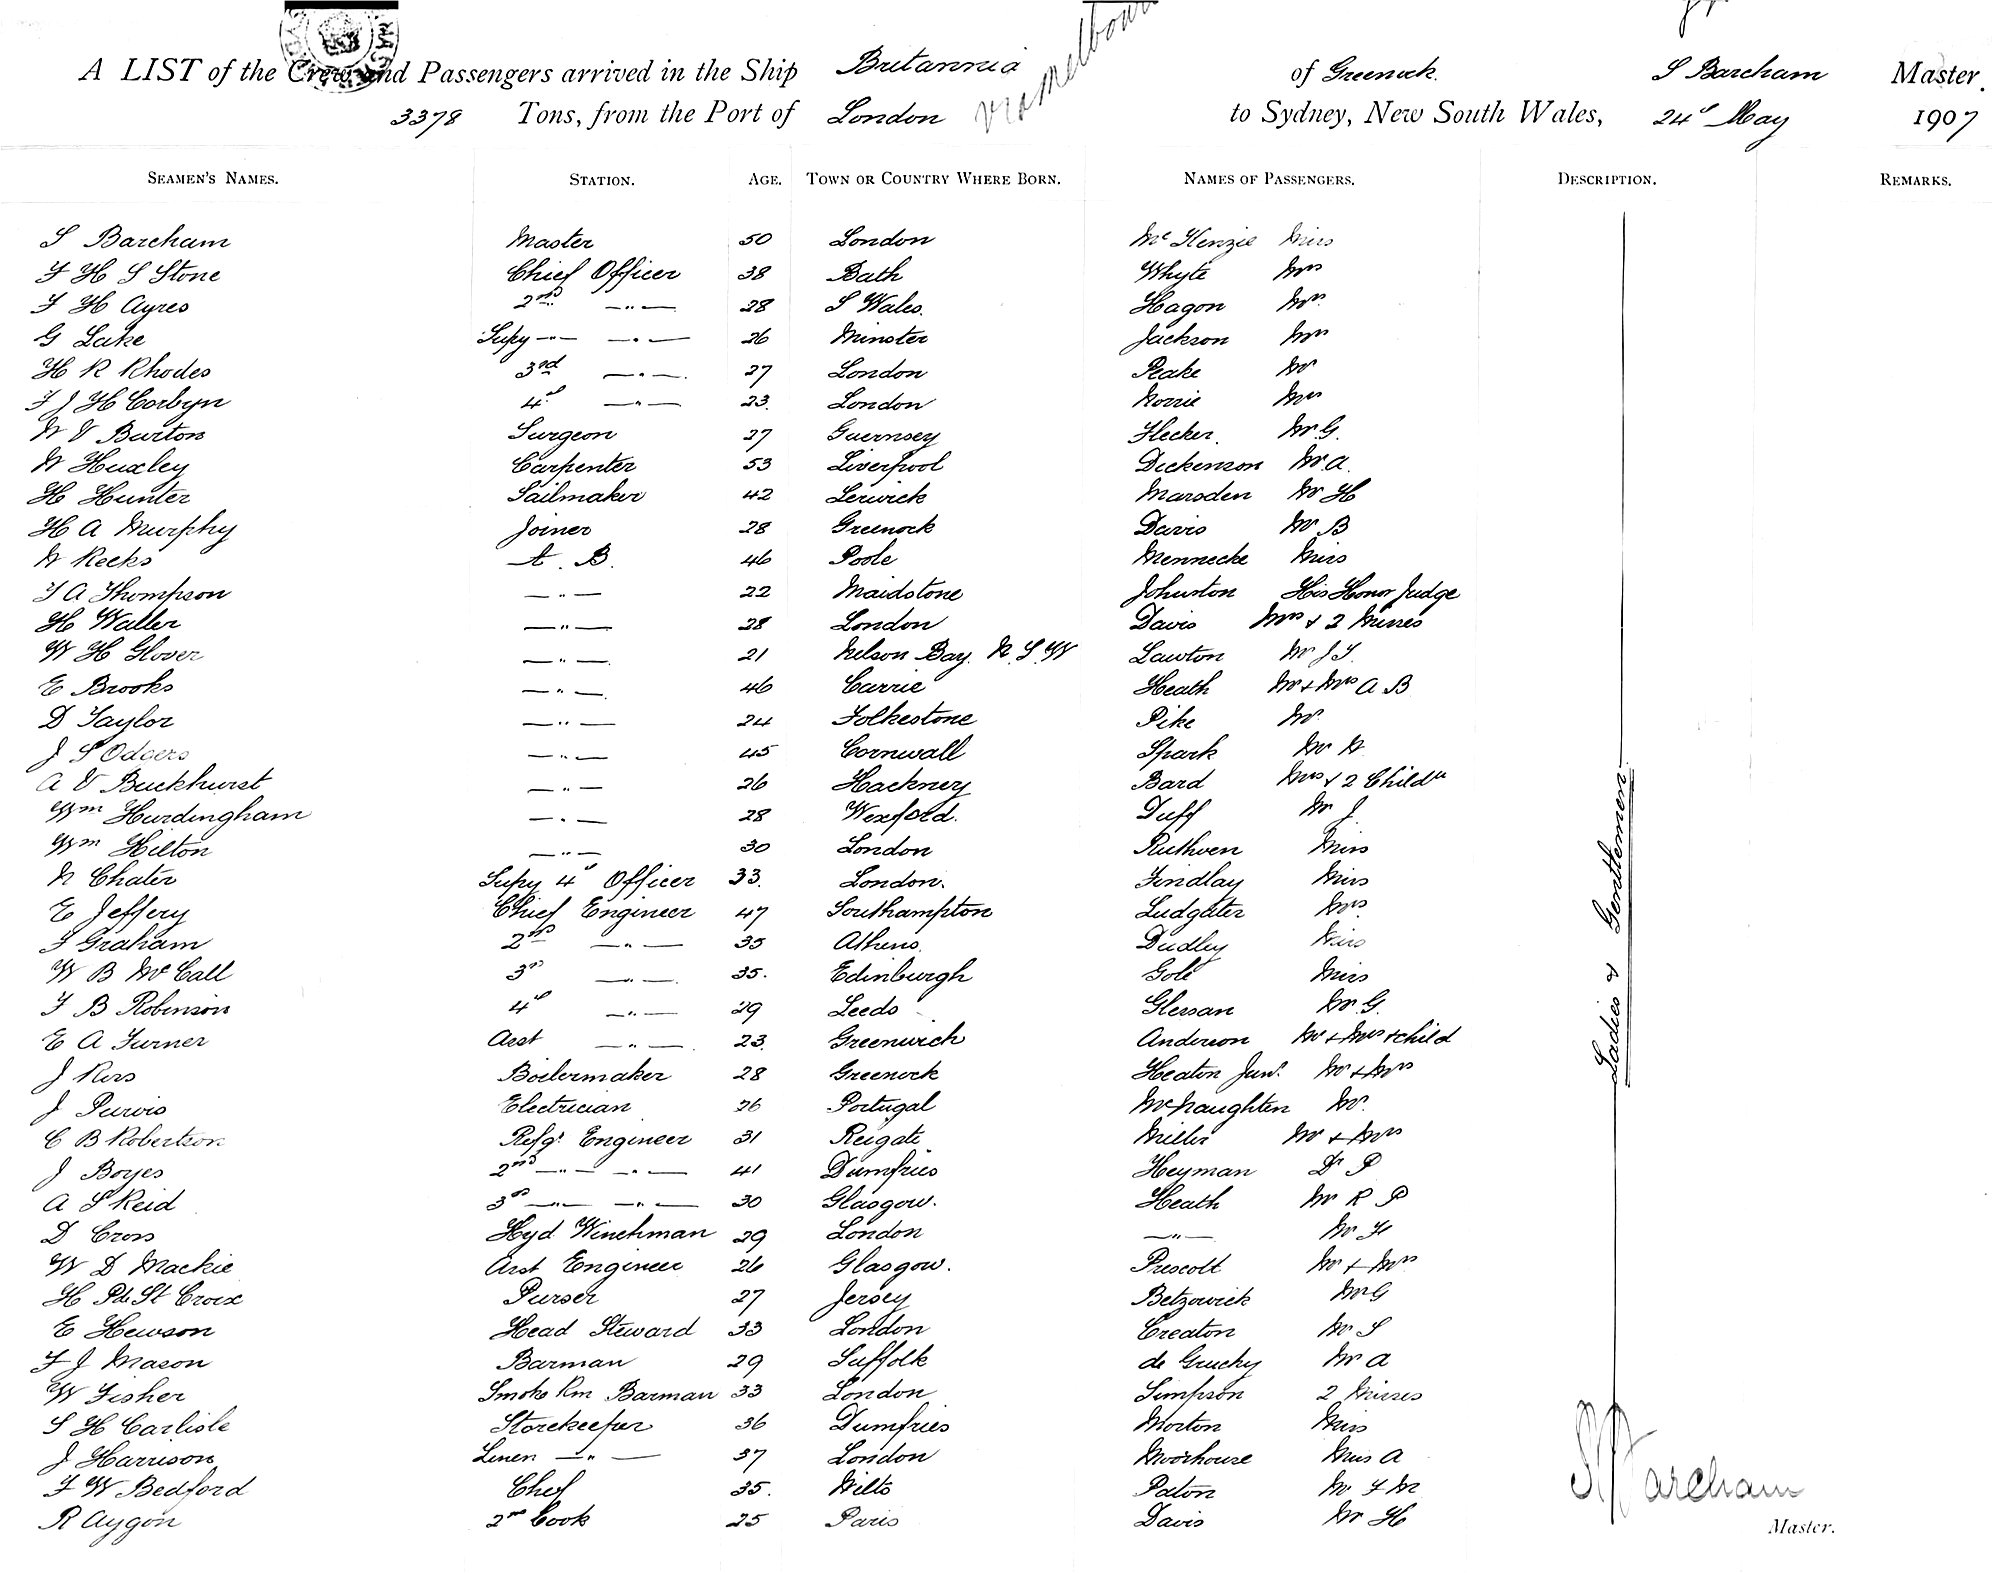 A LIST of the Crew and Passengers arrived in the Ship Britannia of Greenock. S Barcham Master.
3378 Tons, from the Port of London via Melbourne to Sydney, New South Wales, 24th May 1907
SEAMEN'S NAMES. STATION. AGE. TOWN OR COUNTRY WHERE BORN. NAMES OF PASSENGERS. DESCRIPTION. REMARKS.
S Barcham Master 50 London McKenzie Miss
F H S Stone Chief Officer 38 Bath Whyte Mrs
F H Ayres 2nd —"— 28 S Wales. Hagon Mrs
G Lake Supy —"— —"— 26 Minster Jackson Mrs
H R Rhodes 3rd —"— 27 London Peake Mr
F J H Corbyn 4th —"— 23. London Norrie Mrs
N V Burton Surgeon 27 Guernsey Flecker. Mr G.
W Huxley Carpenter 53 Liverpool Dickenson Mr A.
H Hunter Sailmaker 42 Lerwick Marsden Mr H
H A Murphy Joiner 28 Greenock Davis Mr B
W Reeks A. B. 46 Poole Mennecke Miss
F A Thompson —"— 22 Maidstone Johnston His Honor Judge
H Waller —"— 28 London Davis Mrs & 2 Misses
W H Glover —"— 21 Nelson Bay. N.S.W Lawton Mr J T.
E Brooks —"— 46 Carrie Heath Mr & Mrs A B
D Taylor —"— 24 Folkestone Pike Mr.
J S Odgers —"— 45 Cornwall Spark Mr W
A V Buckhurst —"— 26 Hackney Bard Mrs & 2 Childn
Wm Hurdingham —"— 28 Wexford. Duff Mr J.
Wm Hilton —"— 30 London Ruthven Miss
N Chater Supy 4th Officer 33. London. Findlay Miss
E Jeffery Chief Engineer 47 Southampton Ludgater Mrs
F Graham 2nd —"— 35 Athens. Dudley Miss
W B McCall 3rd —"— 35. Edinburgh Gole Miss
F B Robinson 4th —"— 29 Leeds Glessan Mr G.
E A Turner Asst —"— 23. Greenwich Anderson Mr & Mrs & child
J Ross Boilermaker 28 Greenock Heaton Junr. Mr & Mrs
J Purvis Electrician 26 Portugal McNaughten Mr.
C B Robertson Refgr Engineer 31 Reigate Miller Mr & Mrs
J Boyes 2nd —"— —"— 41 Dumfries Heyman Dr P
A S Reid 3rd —"— —"— 30 Glasgow. Heath Mr R P
D Cross Hyd Winchman 29 London —"— Mr F
W D Mackie Asst Engineer 26 Glasgow. Prescott Mr & Mrs
H P de St Croix Purser 27 Jersey Betzowick Mr G
E Hewson Head Steward 33 London Creaton Mr S
F J Mason Barman 29 Suffolk de Gruchy Mr A
W Fisher Smoke Rm Barman 33 London Simpson 2 Misses
S H Carlisle Storekeeper 36 Dumfries Morton Miss
J Harrison Linen —"— 37 London Moorhouse Miss A
F W Bedford Chef 35. Wilts Paton Mr F M
R Aygon 2nd Cook 25 Paris Davis Mr H
Ladies & Gentlemen
S Barcham
Master.